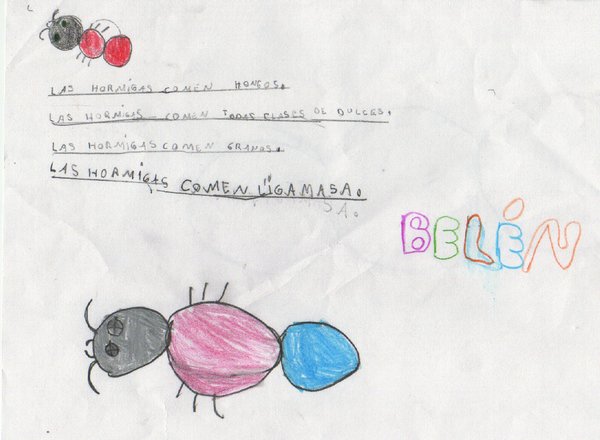 LAS HORMIGAS COMEN HONGOS.
LAS HORMIGAS COMEN TODAS CLASES DE DULCES.
LAS HORMIGAS COMEN GRANOS.
LAS HORMIGAS COMEN ÜGAMASA.
SA.
BELÉN